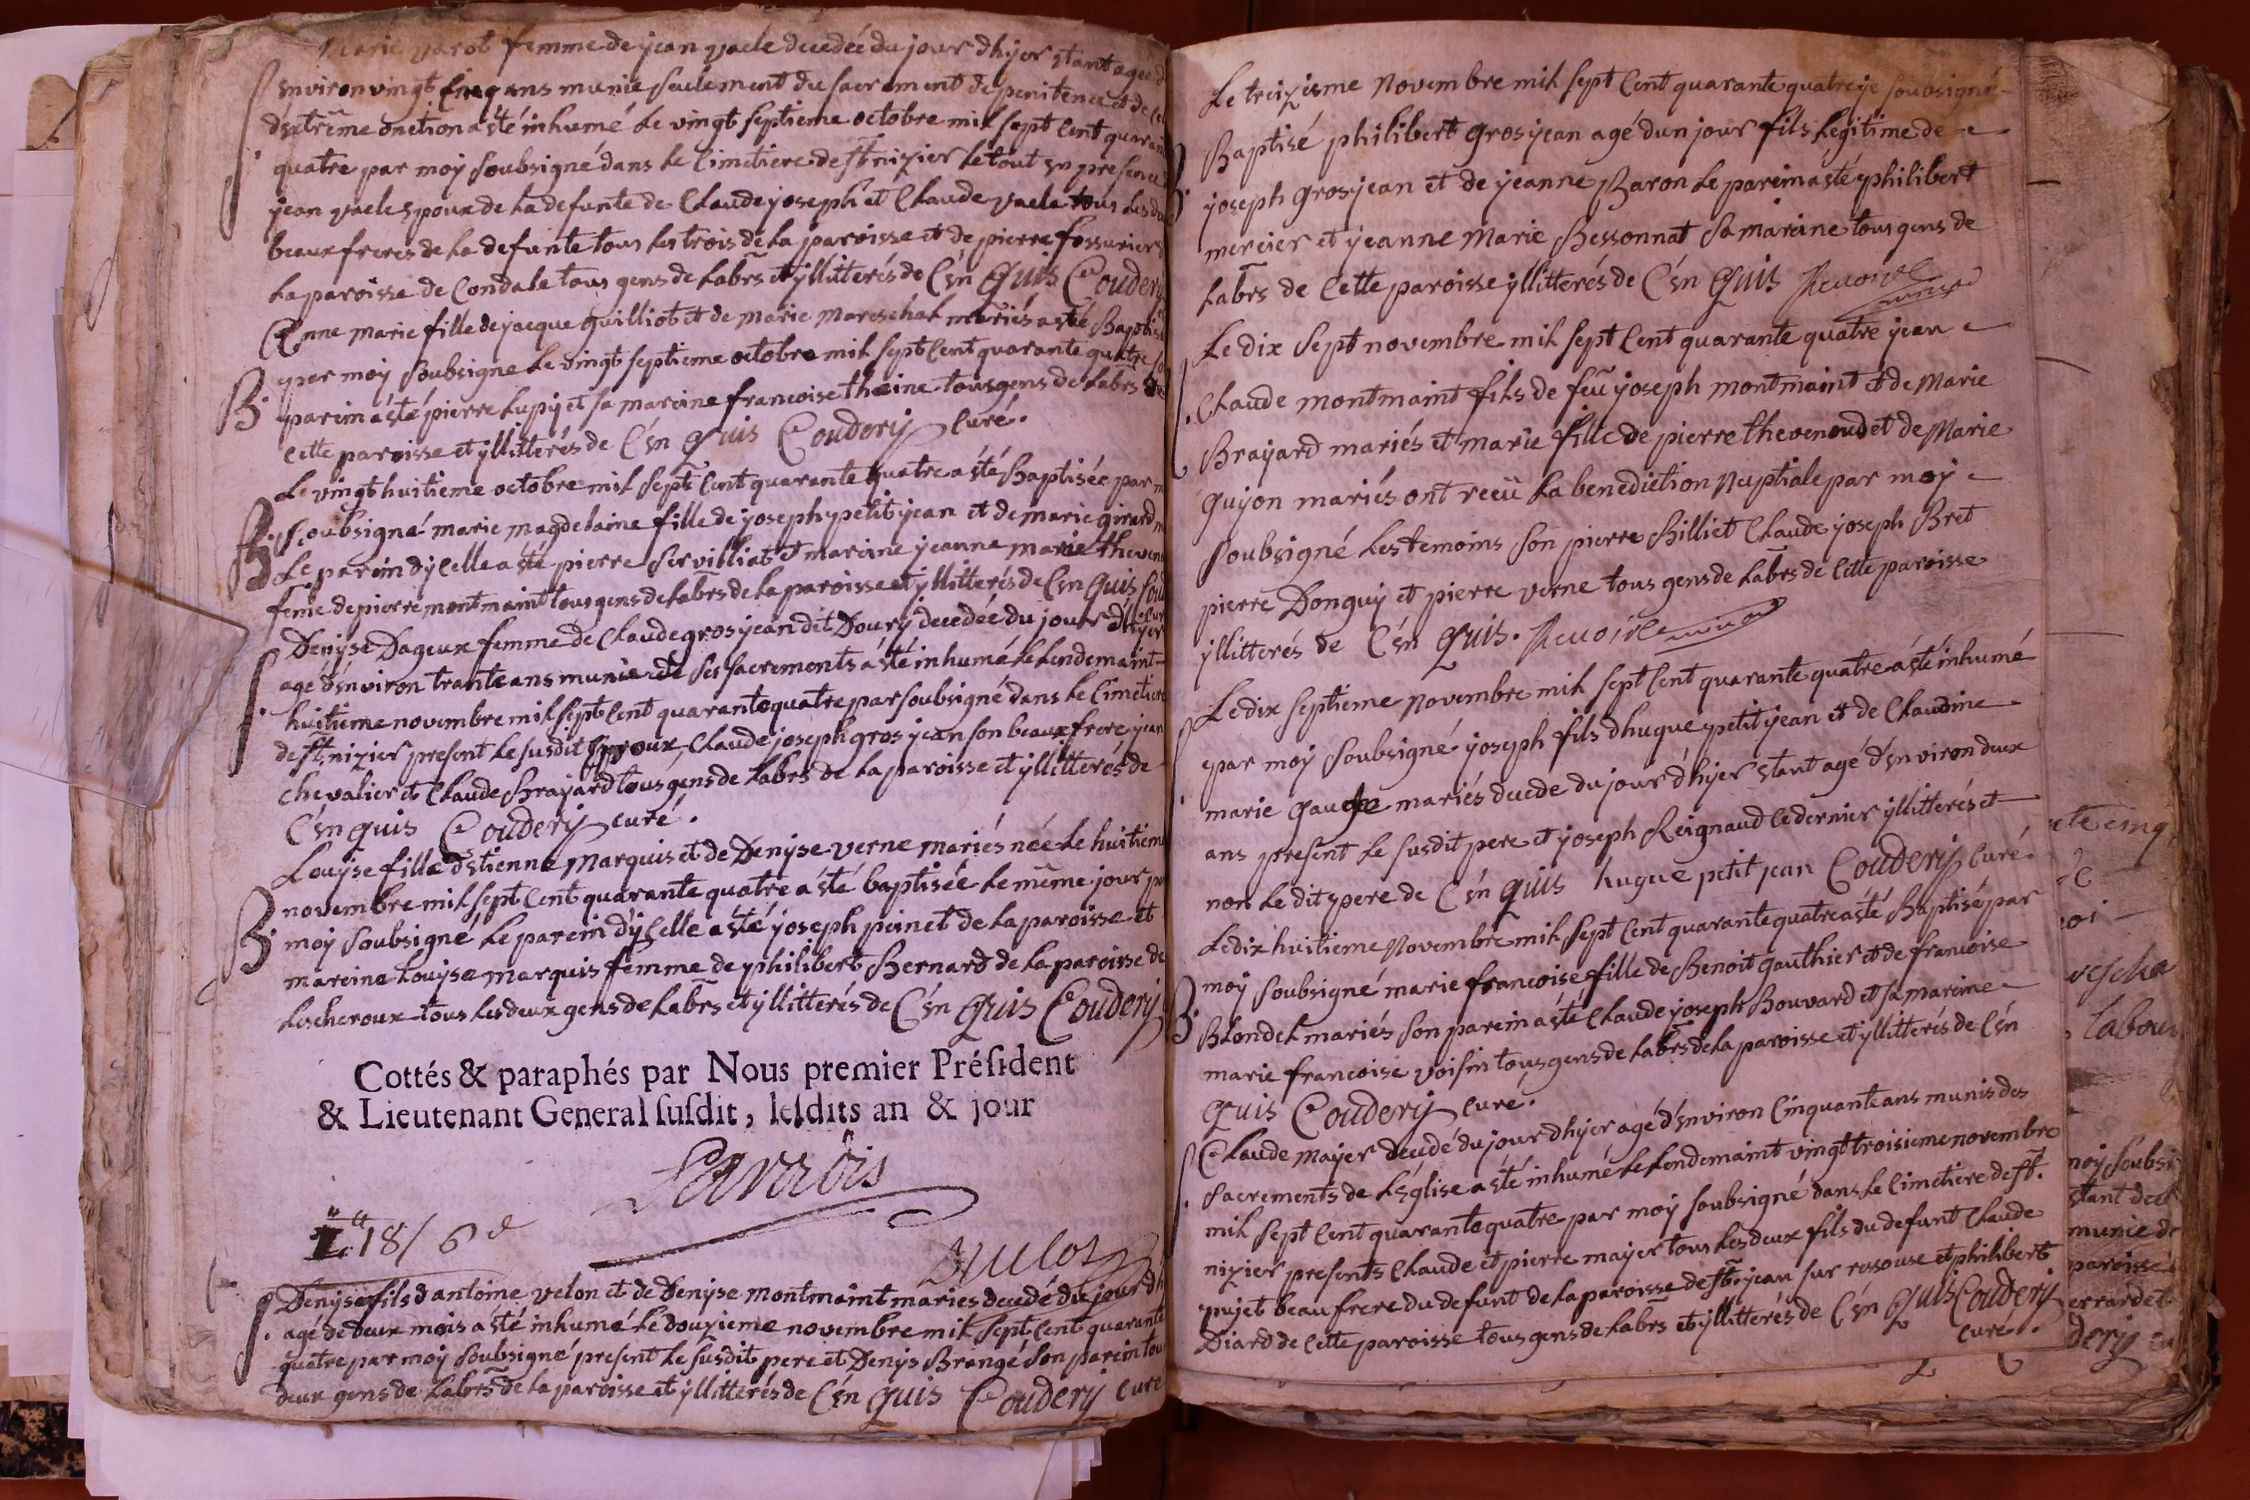 Marie varot femme de jean vaele decedée du jour dhyer etant agee d
environ vingt cinq ans munie seulement du sacrement de penitence et de cel
dextrême onction a été inhumé le vingt septieme octobre mil sept cent quaran
quatre par moy soubsigné dans le cimetiere de st nizier le tout en presence
jean vaele epoux de la defunte de Claude joseph et Claude vaele tous les deux
beaux freres de la defunte tous les trois de la paroisse et de pierre fossurier
la paroisse de Condale tous gens de labrs et yllitterés de C'en quis Coudery
Anne marie fille de jacque guilliot et de marie mareschal mariés a été Baptisé
B. par moy soubsigne le vingt septieme octobre mil sept cent quarante quatre so
parein a été pierre lupy et sa mareine francoise theine tous gens de labrs de
cette paroisse et yllitterés de C'en quis Coudery curé.
Le vingt huitieme octobre mil sept cent quarante quatre a été Baptisée par m
B. soubsigné marie magdelaine fille de joseph petit jean et de marie girard m
Le parein dycelle a été pierre servilliat et mareine jeanne marie theven
feme de pierre montmaint tous gens de labrs de la paroisse et yllitterés de C'en quis Coud
cur
Denyse Dageux femme de Claude gros jean dit Doury decedée du jour d'hyer
agé d'environ trante ans munie de ses sacrements a été inhumé le lendemaint
S. huitieme novembre mil sept cent quarante quatre par soubsigné dans le cimetiere
de st nizier present le susdit epoux, Claude joseph gros jean son beaux frere jean
chevalier et Claude Brayard tous gens de labrs de la paroisse et yllitterés de
C'en quis Coudery curé.
Louyse fille d'etienne Marquis et de Denyse verne mariés née le huitieme
B. novembre mil sept cent quarante quatre a été baptisée le même jour par
moy soubsigné le parein d'ycelle a été joseph peinet de la paroisse et
mareine Louyse marquis femme de philibert Bernard de la paroisse de
Lescheroux tous les deux gens de labrs et yllitterés de C'en quis Coudery
Cottés & paraphés par Nous premier Préſident
& Lieutenant General ſuſdit, leſdits an & jour
18/ 6 d
Denyse fils d'antoine velon et de Denyse montmaint maries decedé du jour d'h
S. agé de deux mois a été inhumé le douzieme novembre mil sept cent quarante
quatre par moy soubsigné present le susdit pere et Denys Brangé son parein tou
deux gens de labrs de la paroisse et yllitterés de C'en quis Coudery curé
Le treizieme novembre mil sept cent quarante quatre je soubsigné
Baptisé philibert gros jean agé dun jour fils legitime de
B. joseph gros jean et de jeanne Baron le parein a été philibert
mercier et jeanne Marie Bessonnat sa mareine tous gens de
labrs de cette paroisse yllitterés de C'en quis
Le dix sept novembre mil sept cent quarante quatre jean
Claude montmaint fils de feu joseph montmaint et de Marie
Brayard mariés et marie fille de pierre thevenoud et de Marie
Guyon mariés ont receu la benediction nuptiale par moy
soubsigné les temoins son pierre Billiet Claude joseph Bret
pierre Donguy et pierre verne tous gens de labrs de cette paroisse
yllitterés de C'en quis.
Le dix septieme novembre mil sept cent quarante quatre a été inhumé
par moy soubsigné joseph fils dhugue petit jean et de Claudine
S. marie mariés decede du jour d'hyer etant agé d'environ deux
ans present le susdit pere et joseph Reignaud ce dernier yllitterés et
non le dit pere de C'en quis hugue petit jean Coudery curé
Le dix huitieme Novembre mil sept cent quarante quatre a été Baptisé par
moy soubsigné marie francoise fille de Benoit gauthier et de francoise
B. Blondel mariés son parein a été Claude joseph Bouvard et sa mareine
marie francoise voisin tous gens de labrs de la paroisse et yllitterés de C'en
quis Coudery curé.
Claude mayer decedé du jour dhyer agé d'environ cinquante ans munis des
S. sacrements de l'église a été inhumé le lendemaint vingt troisieme novembre
mil sept cent quarante quatre par moy soubsigné dans le cimetiere de st.
nizier presents Claude et pierre mayer tous les deux fils du defunt Claude
pujet beau frere du defunt de la paroisse de st jean sur resouse et philibert
Diard de cette paroisse tous gens de labrs et yllitterés de C'en quis Coudery
curé.
labour
moy soubsi
munie de
paroisse